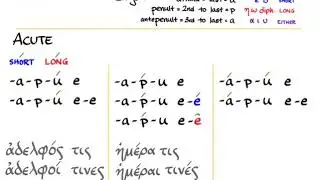 penult = 2nd to last = p η ω diph. LONG
antepenult = 3rd to last = a α ι υ EITHER
ACUTE
SHORT LONG
-a-p-ú e -á-p-u e -á-p-u e
-a-p-ú e-e -a-p-u e-é -á-p-u e-e
-a-p-u e-ê
ἀδελφός τις ἡμέρα τις
ἀδελφοί τινες ἡμέραι τινές